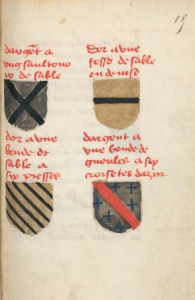 19
dargēt a
ung saultouo
w de sable
dor a une
fesse de sable
en deuise
dor a une
bende de
sable a
six piesses
dargent a
une bende de
gueules a six
croisetes dazur